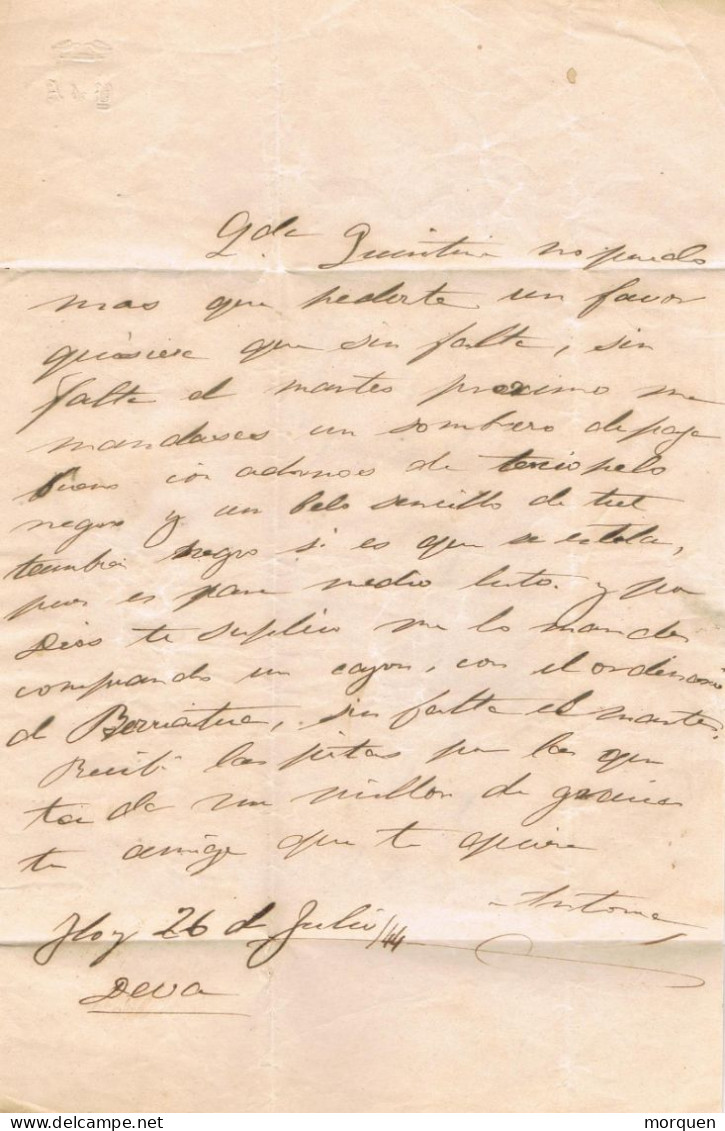 Qda Quintina no puedo
mas que pedirte un favor
quisiera que sin falta, sin
falta el martes proximo me
mandases un sombrero de paja
bueno con adornos de terciopelo
negro y un belo sencillo de tul
tambien negro si es que se estila,
pues es para medio luto. y por
Dios te suplico me lo mandes
comprando un cajon, con el ordinario
de Berriatua, sin falta el martes.
Recibí las por las que
te da un millon de gracias
tu amiga que te quiere
Antonia
Hoy 26 de Julio/44
Deva
morquen